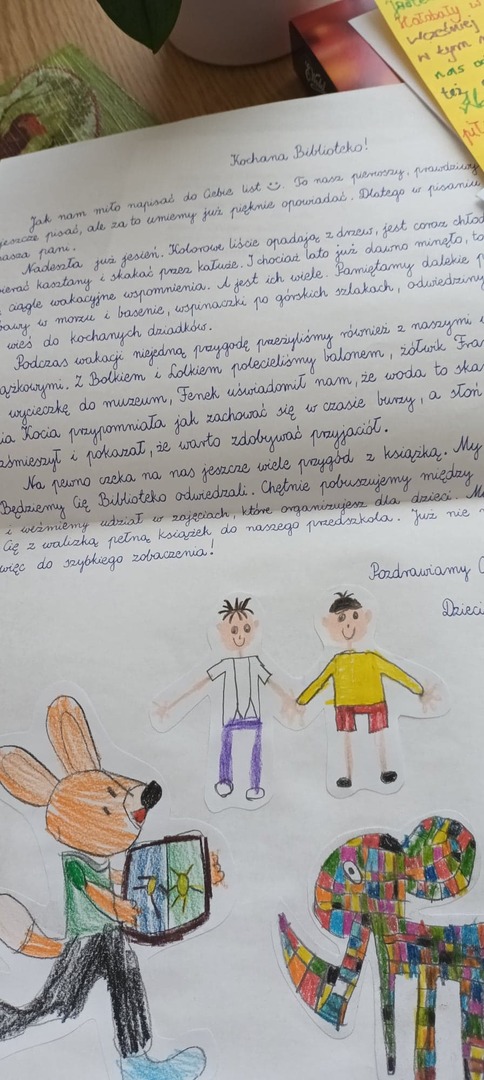 Kochana Biblioteko!
Jak nam miło napisać do Ciebie list 😊. To nasz pierwszy, prawdziwy
jeszcze pisać, ale za to umiemy już pięknie opowiadać. Dlatego w pisaniu
nasza pani.
Nadeszła już jesień. Kolorowe liście opadają z drzew, jest coraz chłod
bierać kasztany i skakać przez kałuże. I chociaż lato już dawno minęło, to
ciągle wakacyjne wspomnienia. A jest ich wiele. Pamiętamy dalekie p
bawy w morzu i basenie, wspinaczki po górskich szlakach, odwiedziny
wieś do kochanych dziadków.
Podczas wakacji niejedną przygodę przeżyliśmy również z naszymi
ążkowymi. Z Bolkiem i Lolkiem polecieliśmy balonem, żółwik Fra
wycieczkę do muzeum, Fenek uświadomił nam, że woda to ska
ia Kocia przypomniała jak zachować się w czasie burzy, a słoń
ośmieszył i pokazał, że warto zdobywać przyjaciół.
Na pewno czeka na nas jeszcze wiele przygód z książką. My
Będziemy Cię Biblioteko odwiedzali. Chętnie pobuszujemy między
i weźmiemy udział w zajęciach, które organizujesz dla dzieci. M
Cię z walizką pełną książek do naszego przedszkola. Już nie m
więc do szybkiego zobaczenia!
Pozdrawiamy C
Dzieci
Kotobały w
wcześniej
w tym
nas
też